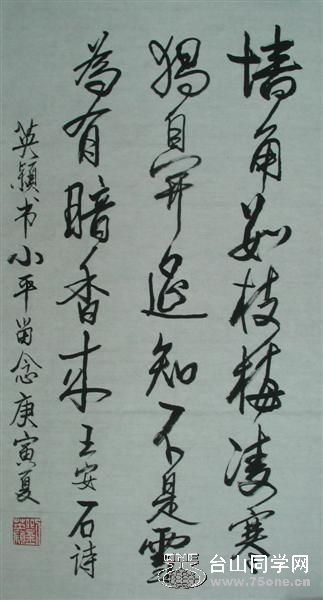 墙角數枝梅凌寒
獨自開遥知不是雪
為有暗香来王安石诗
英颖书小平留念庚寅夏
台山同学网
www.75one.cn